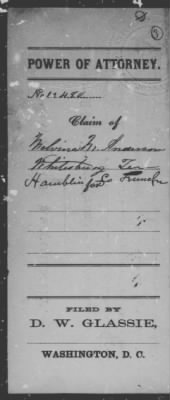 POWER OF ATTORNEY.
Claim of
Melvina W. Anderson
Whitesburg Ten
Hamblin Co
for
FILED BY
D. W. GLASSIE,
WASHINGTON, D. C.